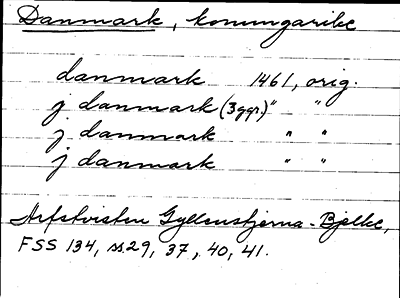 Danmark, konungarike
danmark 1461, orig.
j danmark (3 ggr.) " "
j danmark " "
j danmark " "
Arfstvisten Gyllenstjerna - Bjelke,
FSS 134, ss. 29, 37, 40, 41.